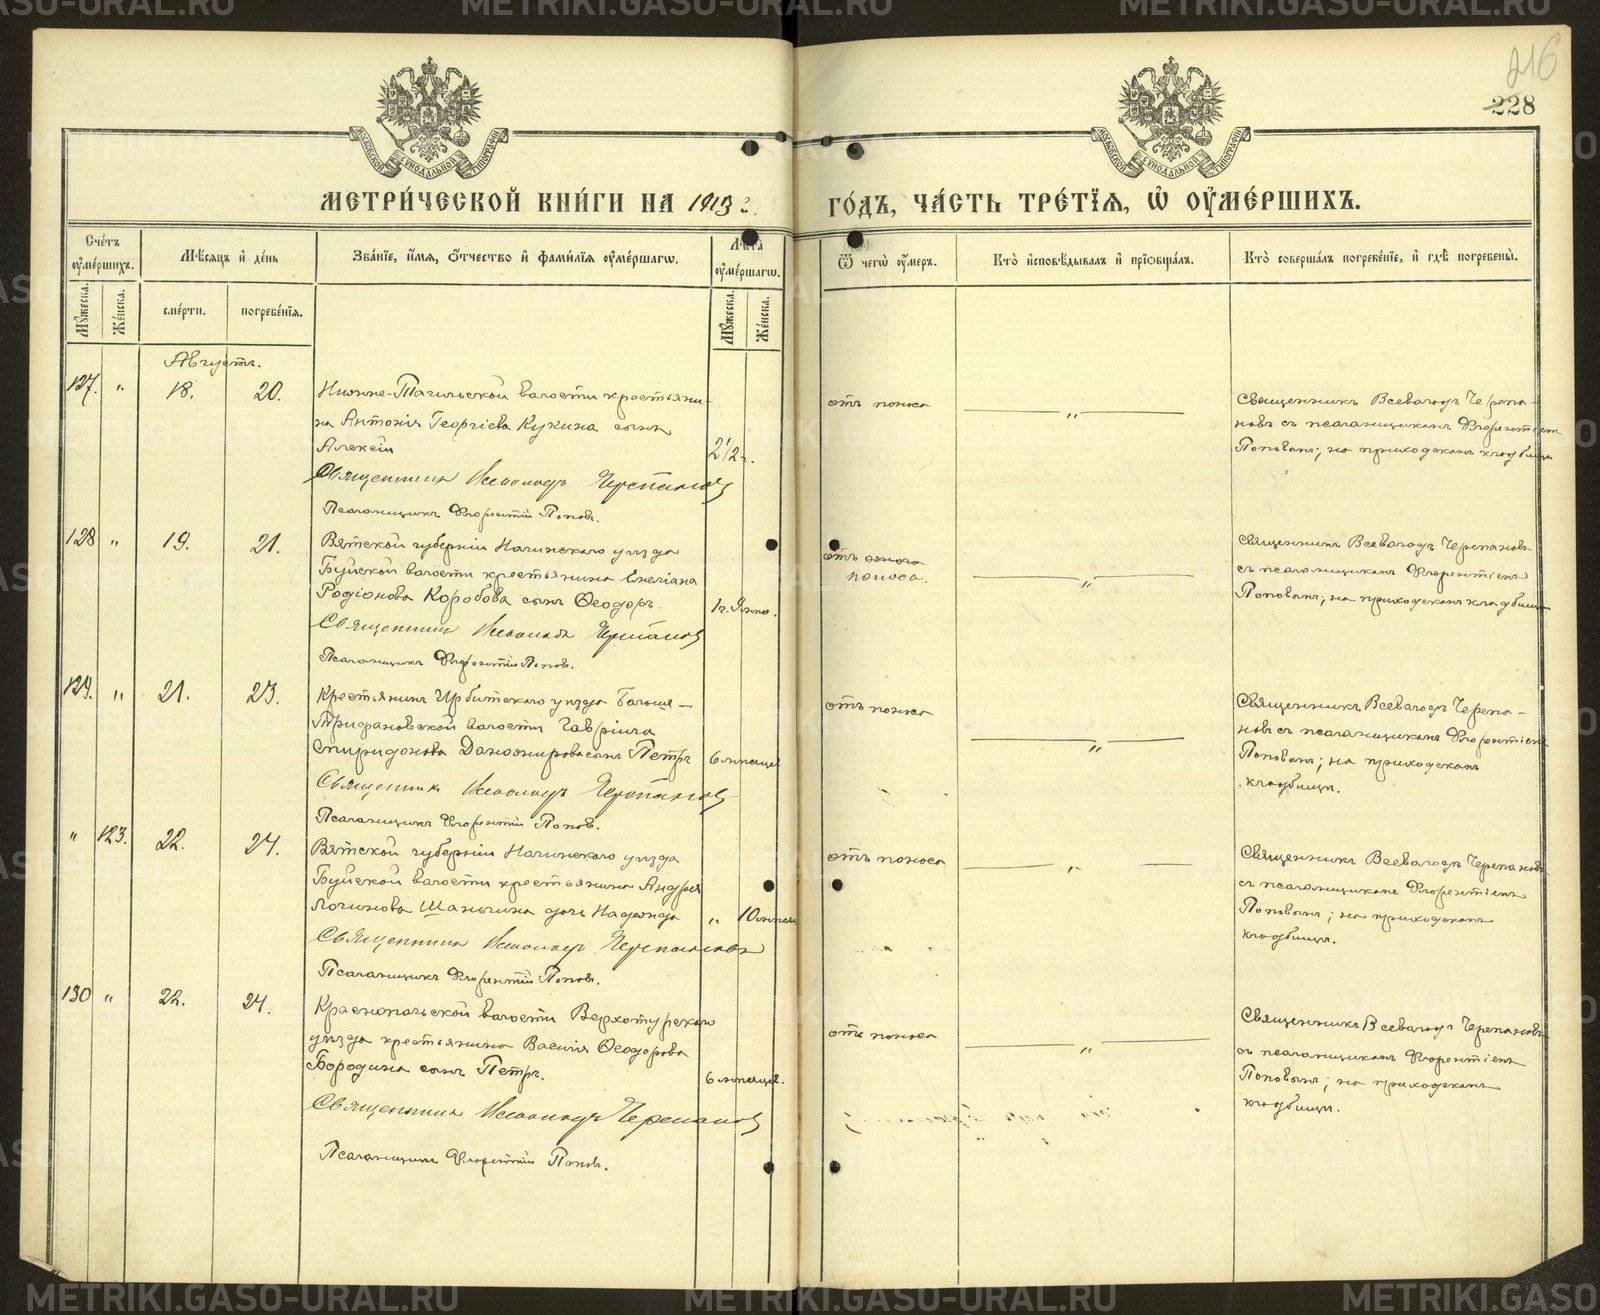 METRIKI.GASO-URAL.RU
216
228
МОСКОВСКОЙ СѴНОДАЛЬНОЙ ТИПОГРАФІИ
МЕТРИ́ЧЕСКОЙ КНИ́ГИ НА 1913 г.
ГО́ДЪ, ЧА́СТЬ ТРЕ́ТІЯ, Ѡ҆ ОУ҆МЕ́РШИХЪ.
Сче́тъ оу҆ме́ршихъ.
Мꙋ́жеска.
Же́нска.
Мѣ́сяцъ и҆ де́нь
сме́рти.
погребе́нїя.
Зва́нїе, и҆́мя, ѻ҆́тчество и҆ фами́лїя оу҆ме́ршагѡ.
Лѣ́та оу҆ме́ршагѡ.
Мꙋ́жеска.
Же́нска.
Ѿ чегѡ̀ оу҆́меръ.
Кто̀ и҆сповѣ́дывалъ и҆ прїѡбща́лъ.
Кто̀ соверша́лъ погребе́нїе, и҆ гдѣ̀ погребены̀.
Августъ.
127. " 18. 20.
Нижне-Тагильской волости крестьяни-
на Антонія Георгіева Кукина сынъ
Алексій
2 1/2 г.
Священникъ Всеволодъ Черепановъ
Псаломщикъ Флорентій Поповъ.
отъ поноса
"
Священникъ Всеволодъ Черепа-
новъ съ псаломщикомъ Флорентіемъ
Поповымъ; на приходскомъ кладбищѣ
128 " 19. 21.
Вятской губерніи Уезда
Буйской волости крестьянина
Родіонова Коробова сынъ Ѳеодоръ.
Священникъ Всеволодъ Черепановъ
Псаломщикъ Флорентій Поповъ.
отъ
поноса.
"
Священникъ Всеволодъ Черепановъ
съ псаломщикомъ Флорентіемъ
Поповымъ; на приходскомъ кладбищѣ
129. " 21. 23.
Крестьянинъ Ирбитскаго уѣзда Больше-
Трифановской волости Гавріила
Спиридонова сынъ Петръ
6 мѣсяцев
Священникъ Всеволодъ Черепановъ
Псаломщикъ Флорентій Поповъ.
отъ поноса
"
Священникъ Всеволодъ Черепа-
новъ съ псаломщикомъ Флорентіемъ
Поповымъ; на приходскомъ
кладбищѣ.
" 123. 22. 24.
Вятской губерніи уѣзда
Буйской волости крестьянина Андрея
Логинова дочь Надежда
" 10 мѣсяц
Священникъ Всеволодъ Черепановъ
Псаломщикъ Флорентій Поповъ.
отъ поноса
"
Священникъ Всеволодъ Черепановъ
съ псаломщикомъ Флорентіемъ
Поповымъ; на приходскомъ
кладбищѣ.
130 " 22. 24.
Краснопольской волости Верхотурскаго
уѣзда крестьянина Василія Ѳеодорова
Бородина сынъ Петръ.
6 мѣсяцев.
Священникъ Всеволодъ Черепановъ
Псаломщикъ Флорентій Поповъ.
отъ поноса
"
Священникъ Всеволодъ Черепановъ
съ псаломщикомъ Флорентіемъ
Поповымъ; на приходскомъ
кладбищѣ.